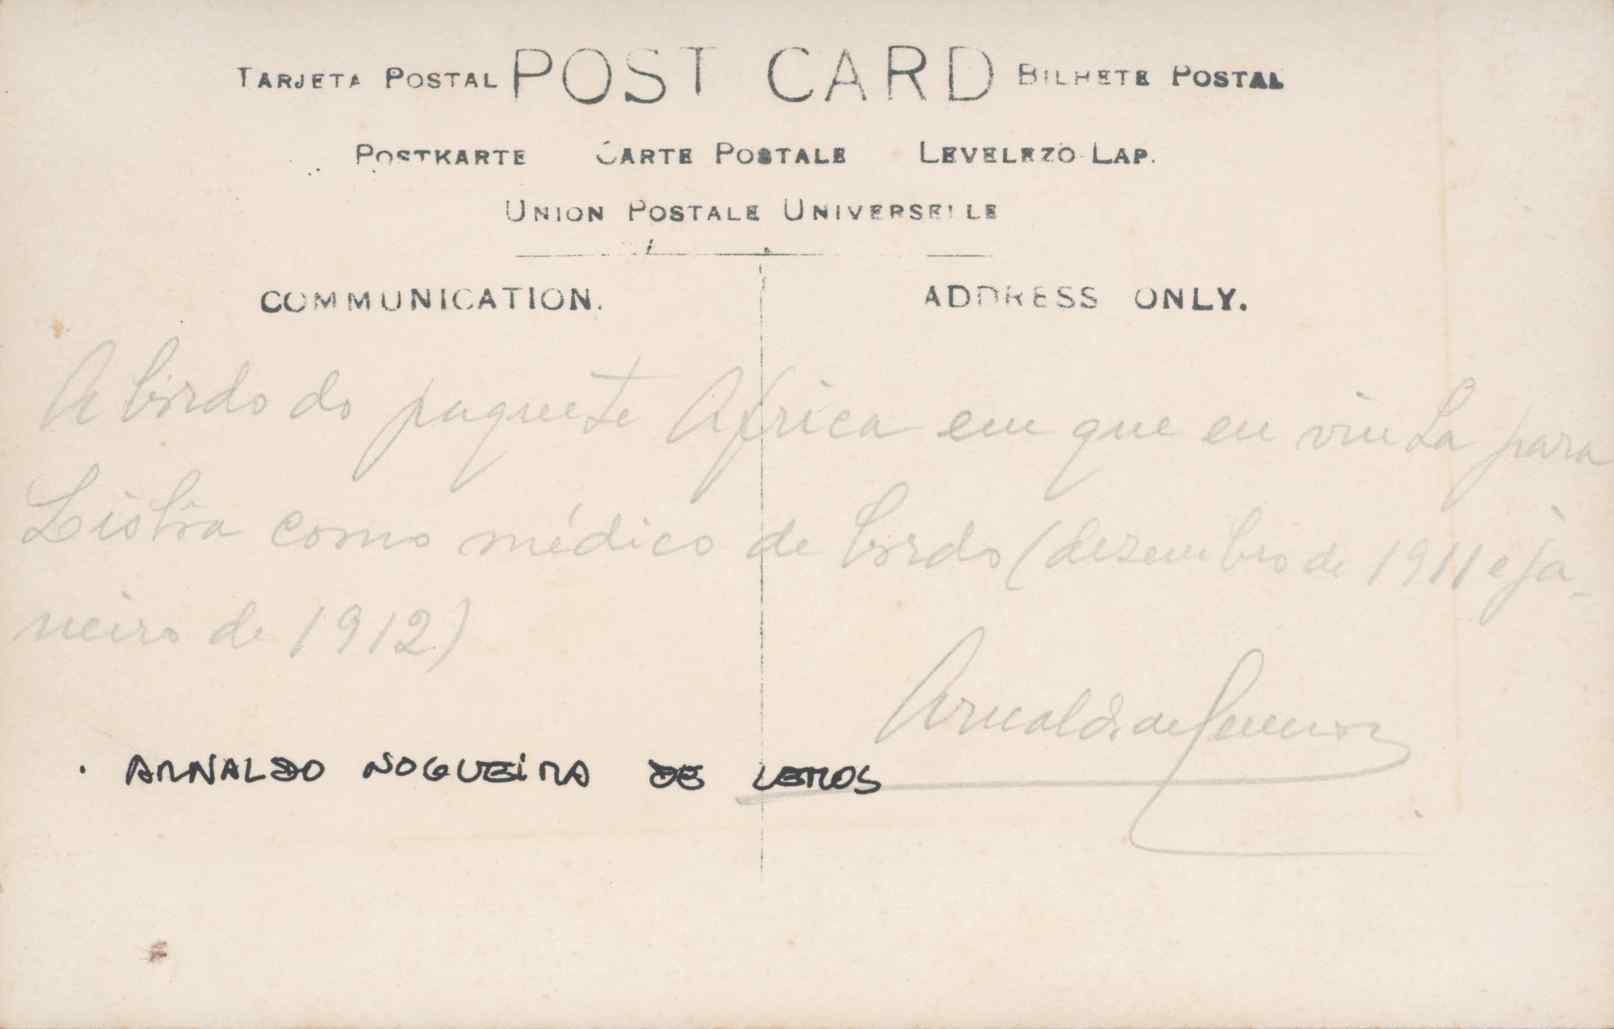 TARJETA POSTAL POST CARD BILHETE POSTAL
POSTKARTE CARTE POSTALE LEVELEZO-LAP.
UNION POSTALE UNIVERSELLE
COMMUNICATION. ADDRESS ONLY.
A bordo do paquete Africa em que eu vinha para
Lisbôa como médico de bordo (dezembro de 1911 e ja-
neiro de 1912)
Arnaldo de Lemos
. ARNALDO NOGUEIRA DE LEMOS